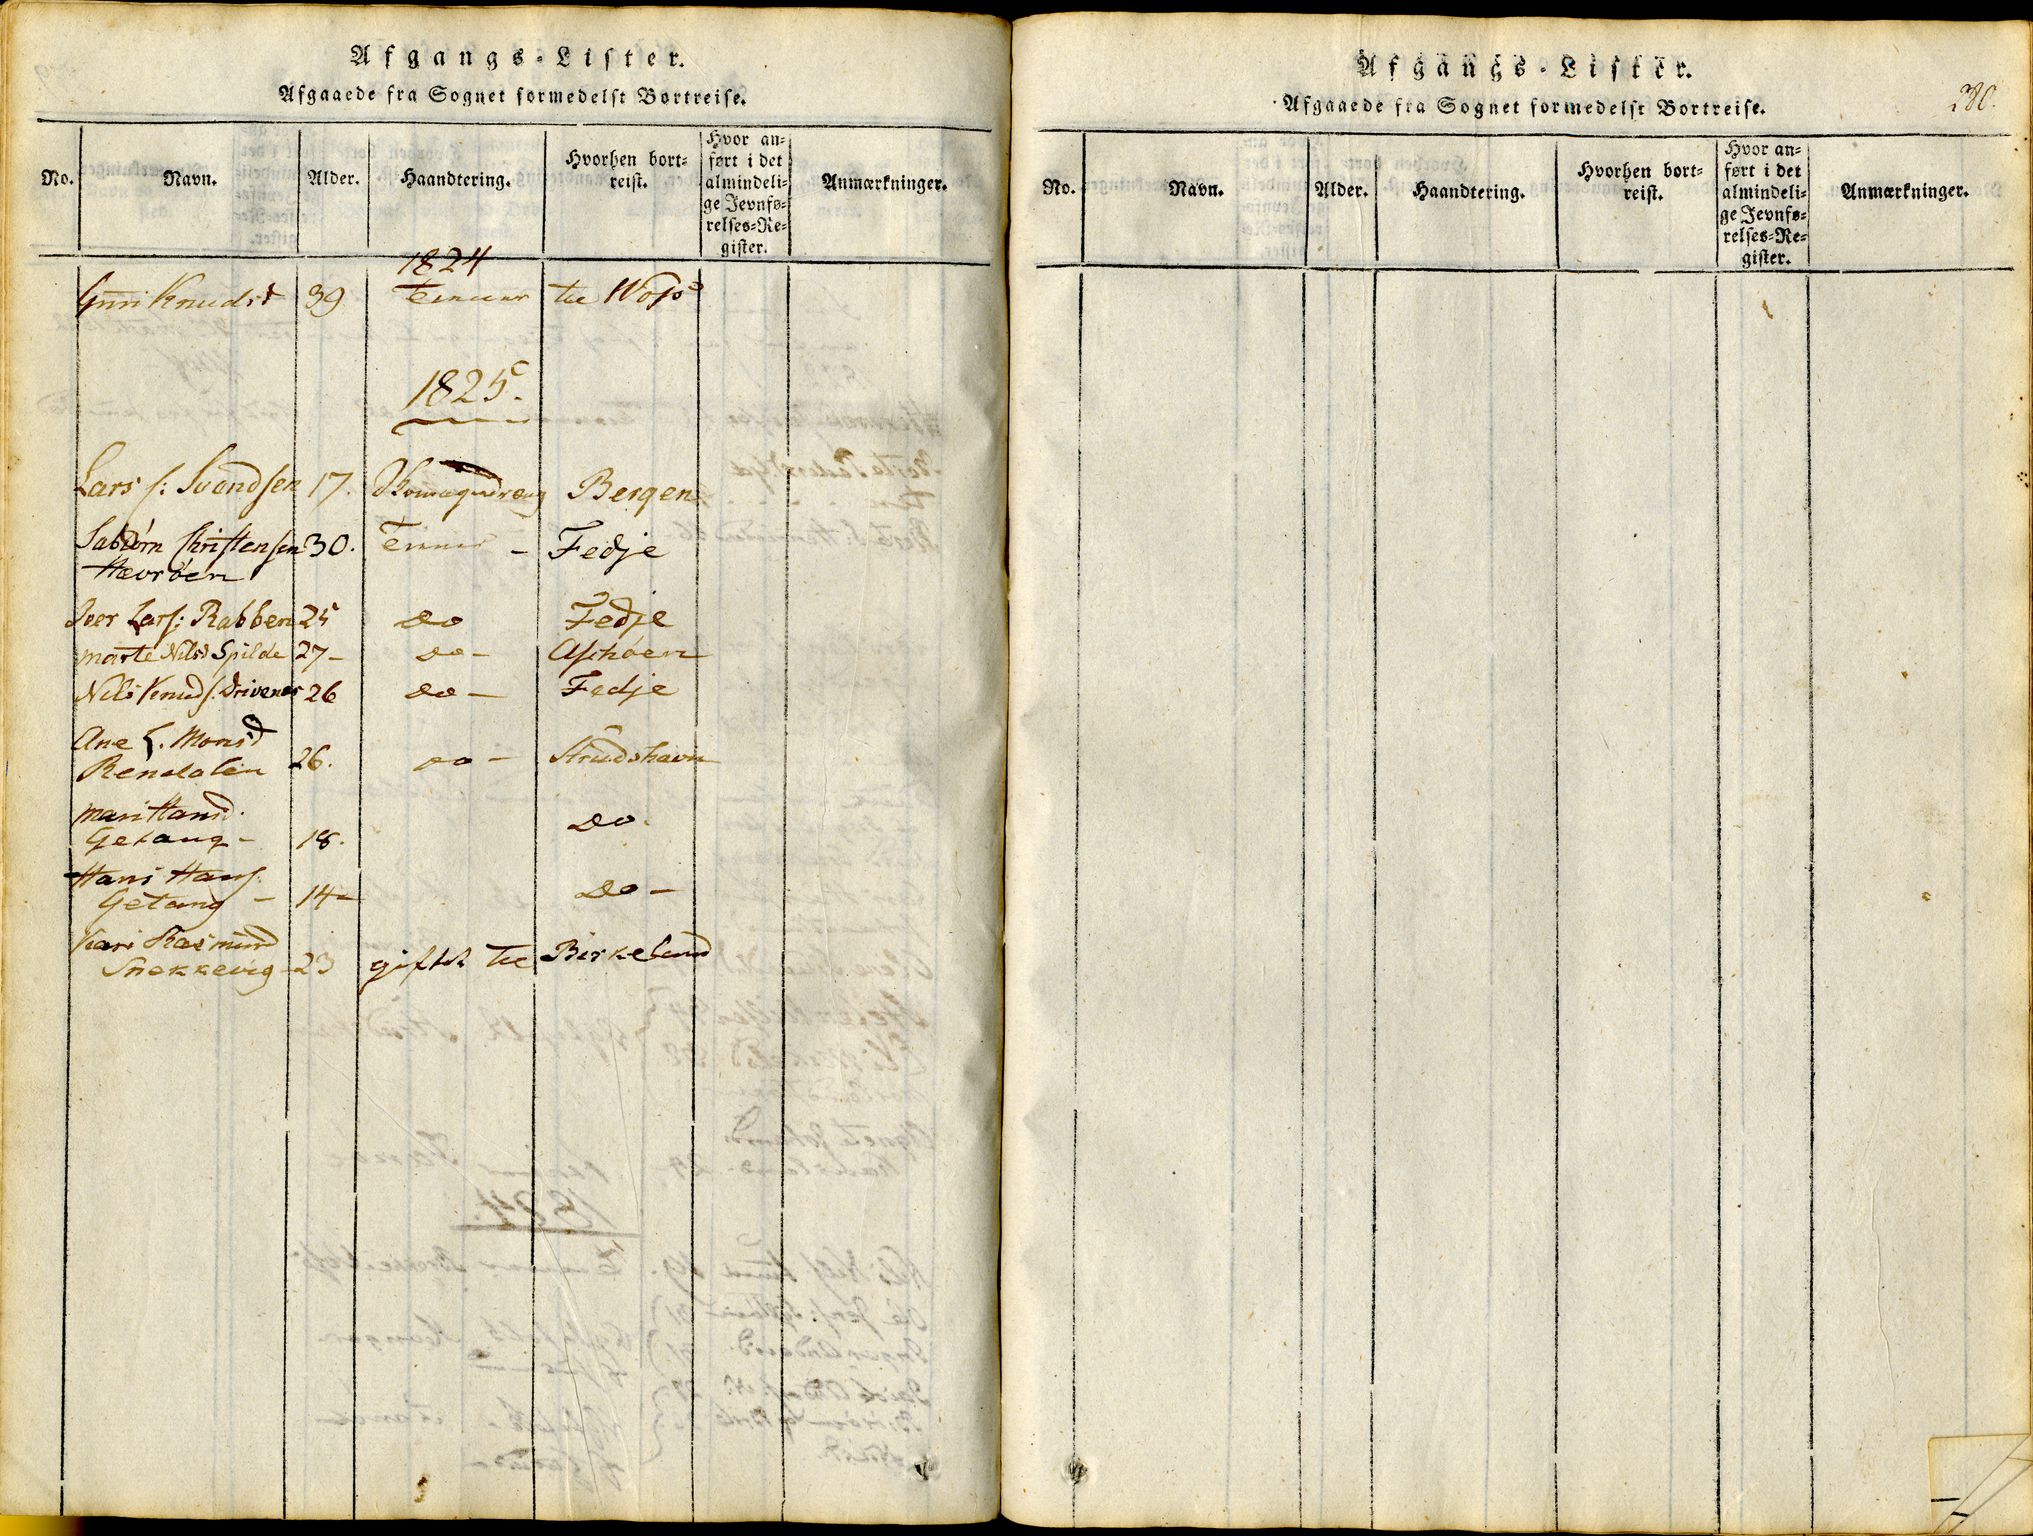 Afgangs-Lister.
Afgaaede fra Sognet formedelst Bortreise.
No. Navn. Alder. Haandtering. Hvorhen bort=
reist. Hvor an=
ført i det
almindeli=
ge Jevnfø=
relses=Re=
gister. Anmærkninger.
1824
Guri Knudsd 39 Tienner til
1825.
Lars S: Svendsen 17. Bergen
Christensen 30. Tienner - Fedje
Havrøen
Iver Lars: Rabben 25 do Fedje
Marte Nilsd Spilde 27- do- Aschøen
Nils Knuds: Drivenes 26 do- Fedje
Ane L. Monsd
26. do - Strudshavn
Mari Hansd.
Getang - 18. Do.
Hans Hans:
Getang - 14- Do-
Kari Rasmusd
Snekkevig - 23 giftet til Birkeland
Afgangs-Lister.
Afgaaede fra Sognet formedelst Bortreise.
280.
No. Navn. Alder. Haandtering. Hvorhen bort=
reist. Hvor an=
ført i det
almindeli=
ge Jevnfø=
relses=Re=
gister. Anmærkninger.